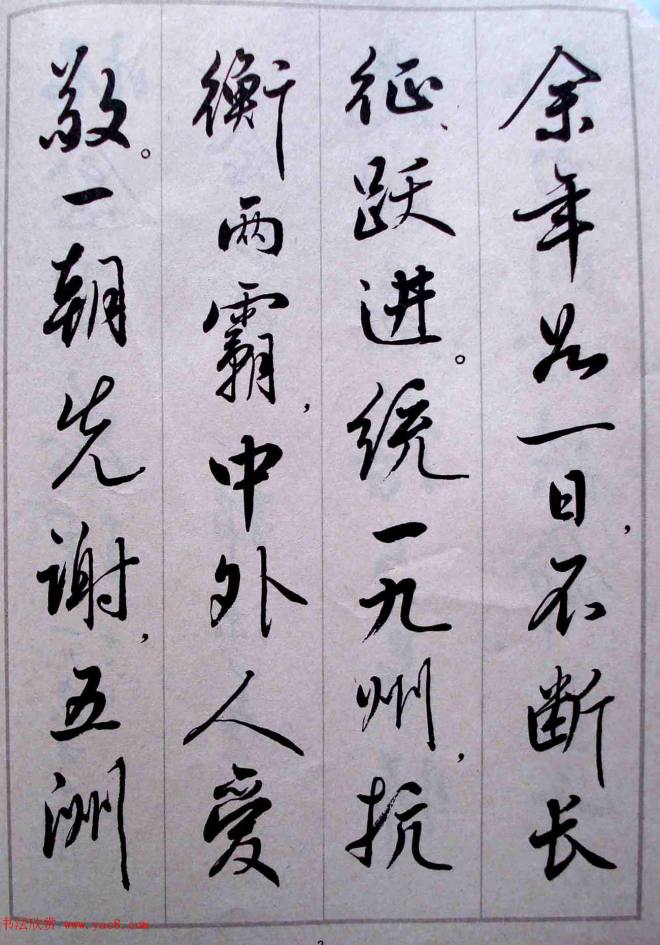 余年如一日，不断长
征、跃进。统一九州，抗
衡两霸，中外人爱
敬。一朝先谢，五洲
书法欣赏 www.yac8.com
2